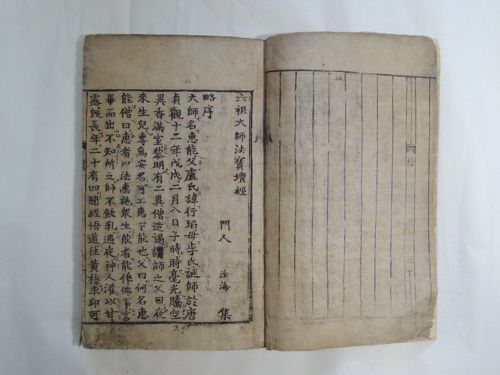 六祖大師法寶壇經
門人 法海 集
略序
大師名惠能父盧氏諱行瑫母李氏誕師於唐
貞觀十二年戊戌二月八日子時時毫光騰空
異香滿室黎明有二異僧造謁師之父曰夜
來生兒專爲安名可上惠下能也父曰何名惠
能僧曰惠者以法惠施衆生能者能作佛事言
畢而出不知所之師不飮乳過夜神人灌以甘
露旣長年二十有四聞經悟道往黃梅求印可